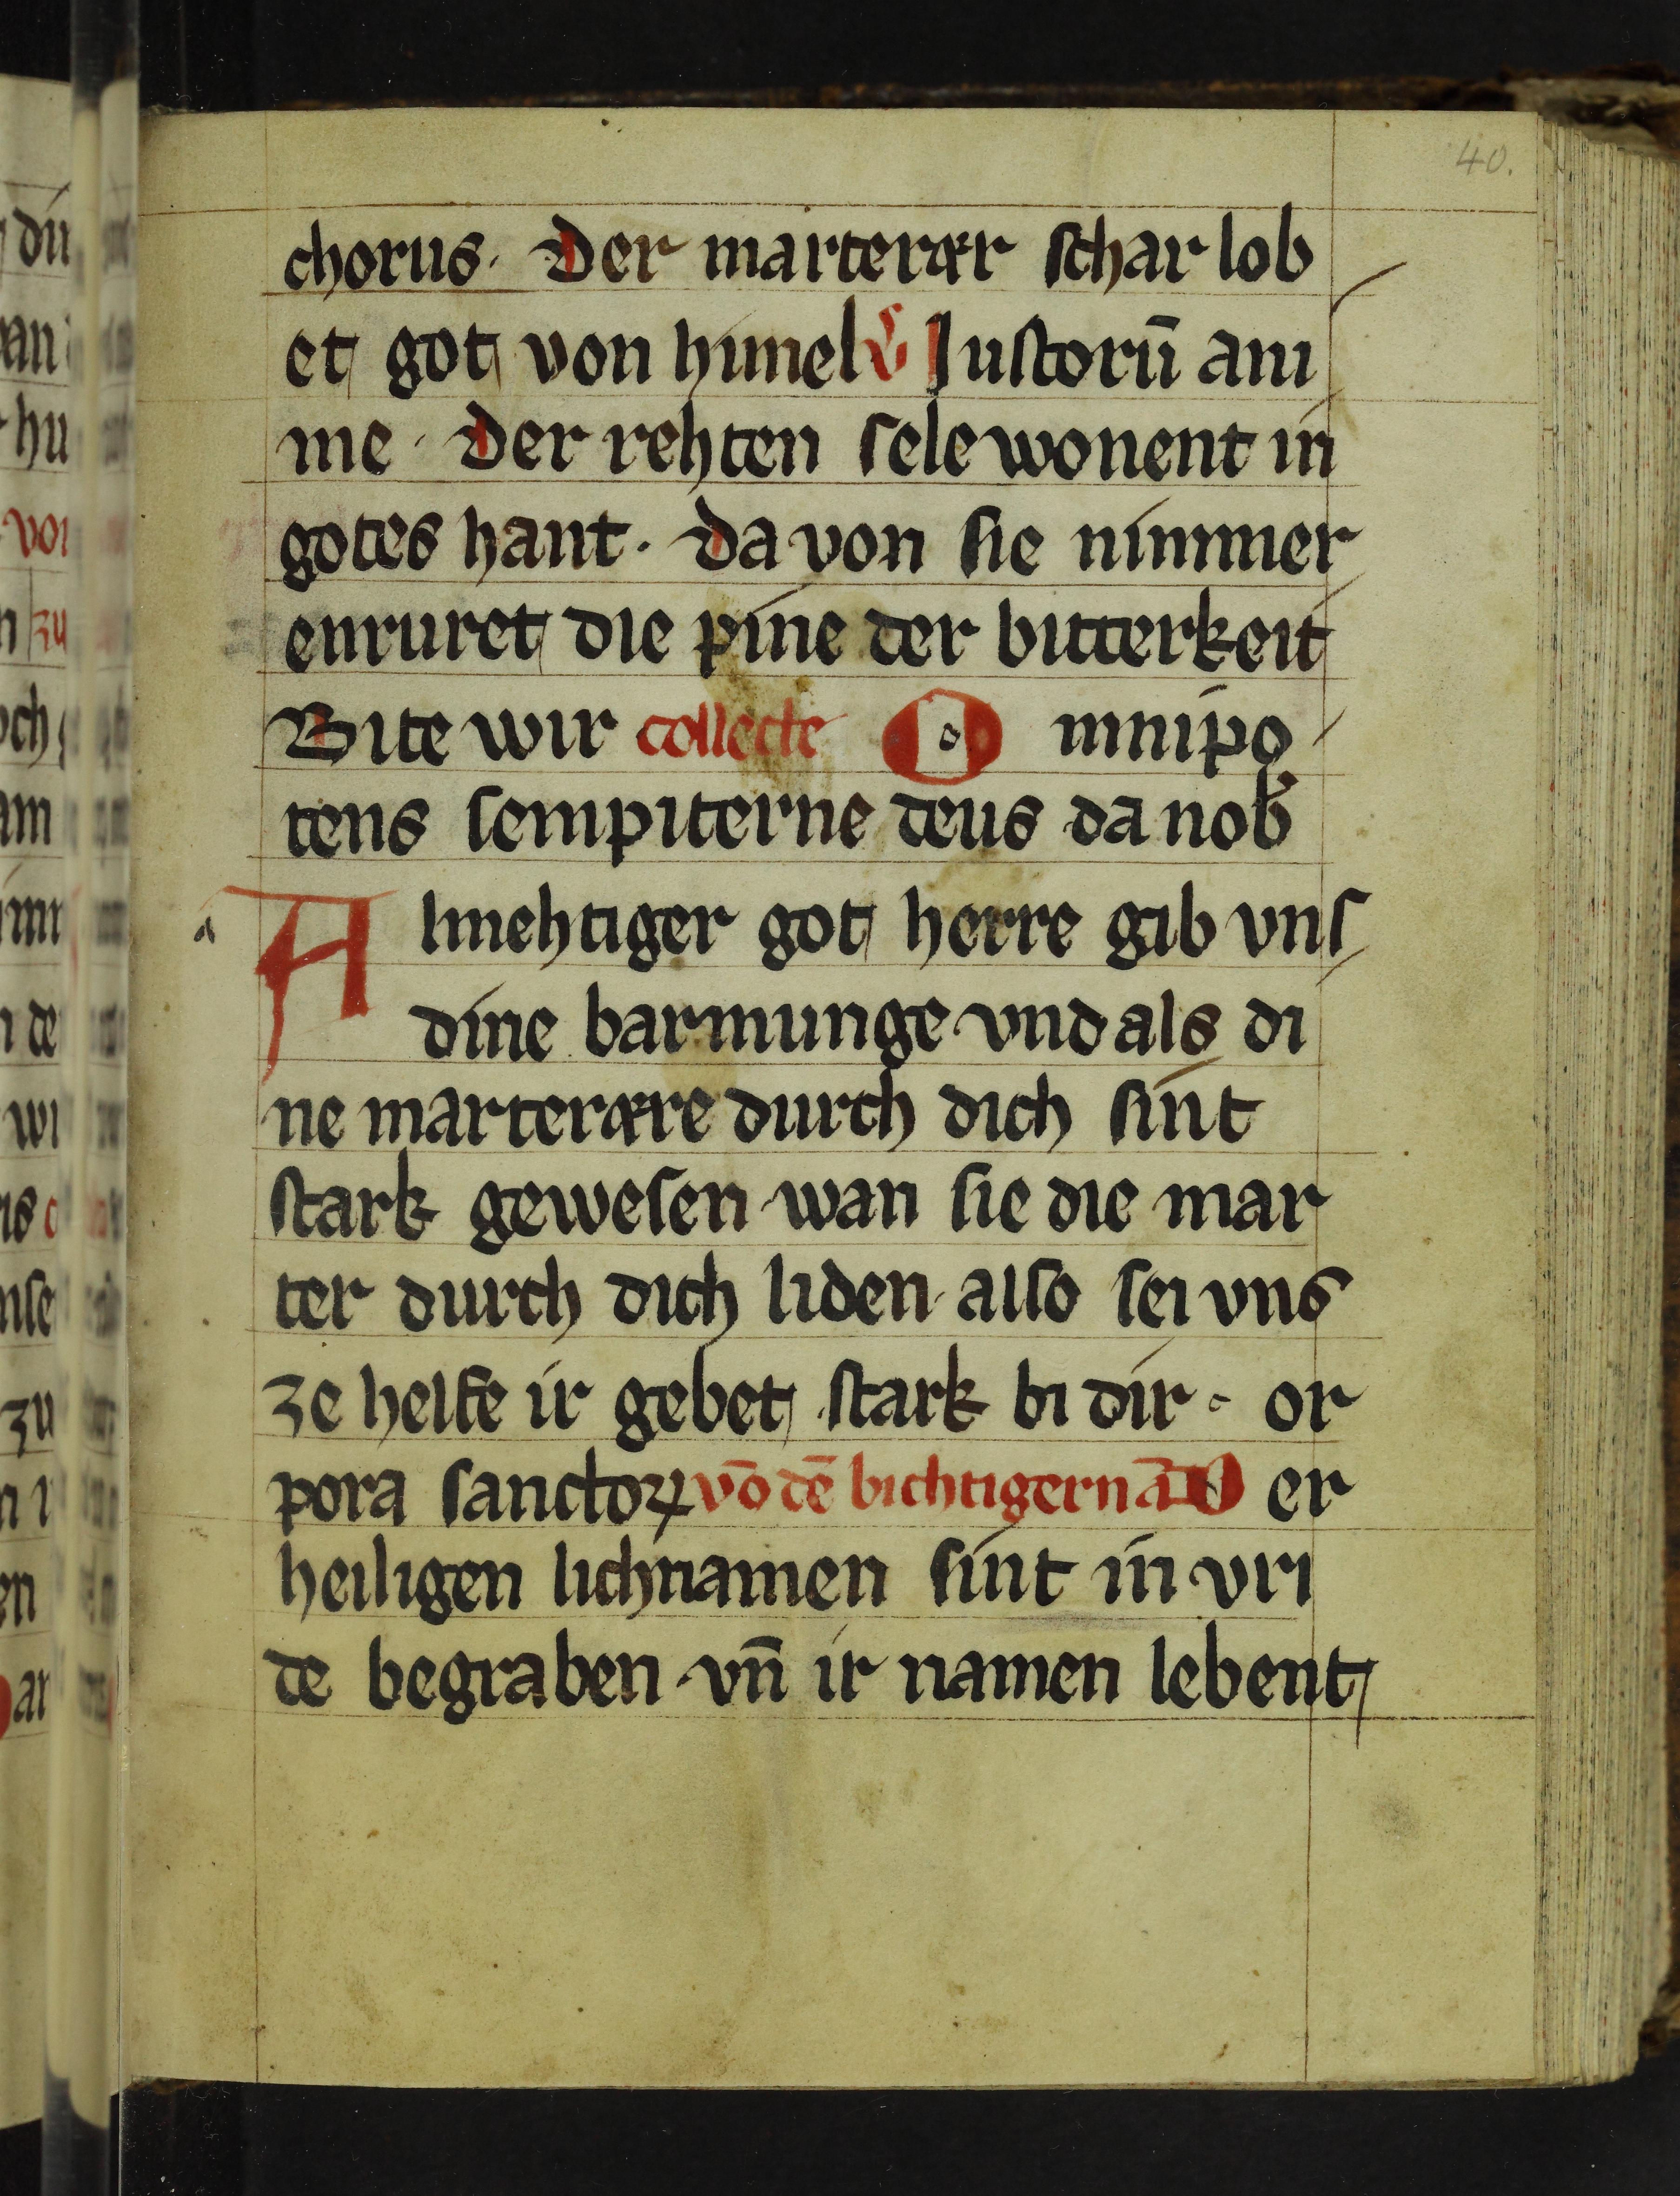 40.
chorus. Der marterær schar lob
et got von himel ℣ Justorū ani
me. Der rehten sele wonent in
gotes hant. Da von sie nimmer
enruret die pine der bitterkeit
Bite wir collecte O mnipo
tens sempiterne deus da nob̄
A lmehtiger got herre gib vns
dine barmunge vnd als di
ne marterære durch dich sint
stark gewesen wan sie die mar
ter durch dich liden also sei vns
ze helfe ir gebet stark bi dir. or
pora sanctoꝝ vō dē bichtigern ā D er
heiligen lichnamen sint in vri
de begraben vn̄ ir namen lebent